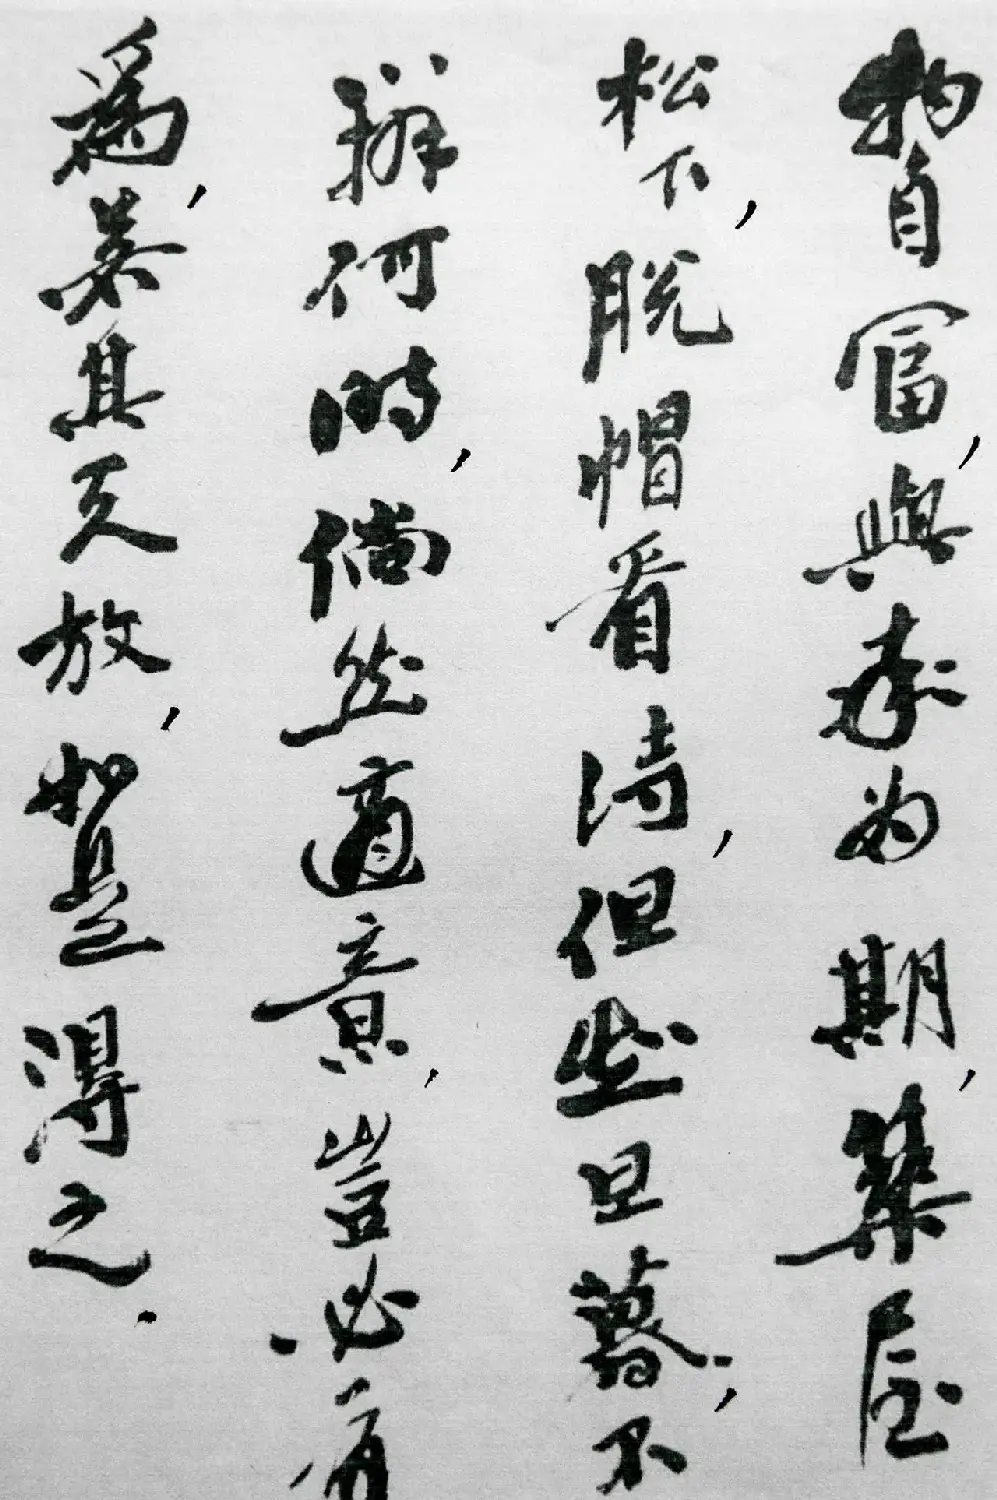 物自富,與率为期,築屋
松下,脱帽看诗,但旦暮,不
辨何時,倘然適意,豈必有
為,若其天放,如是得之.